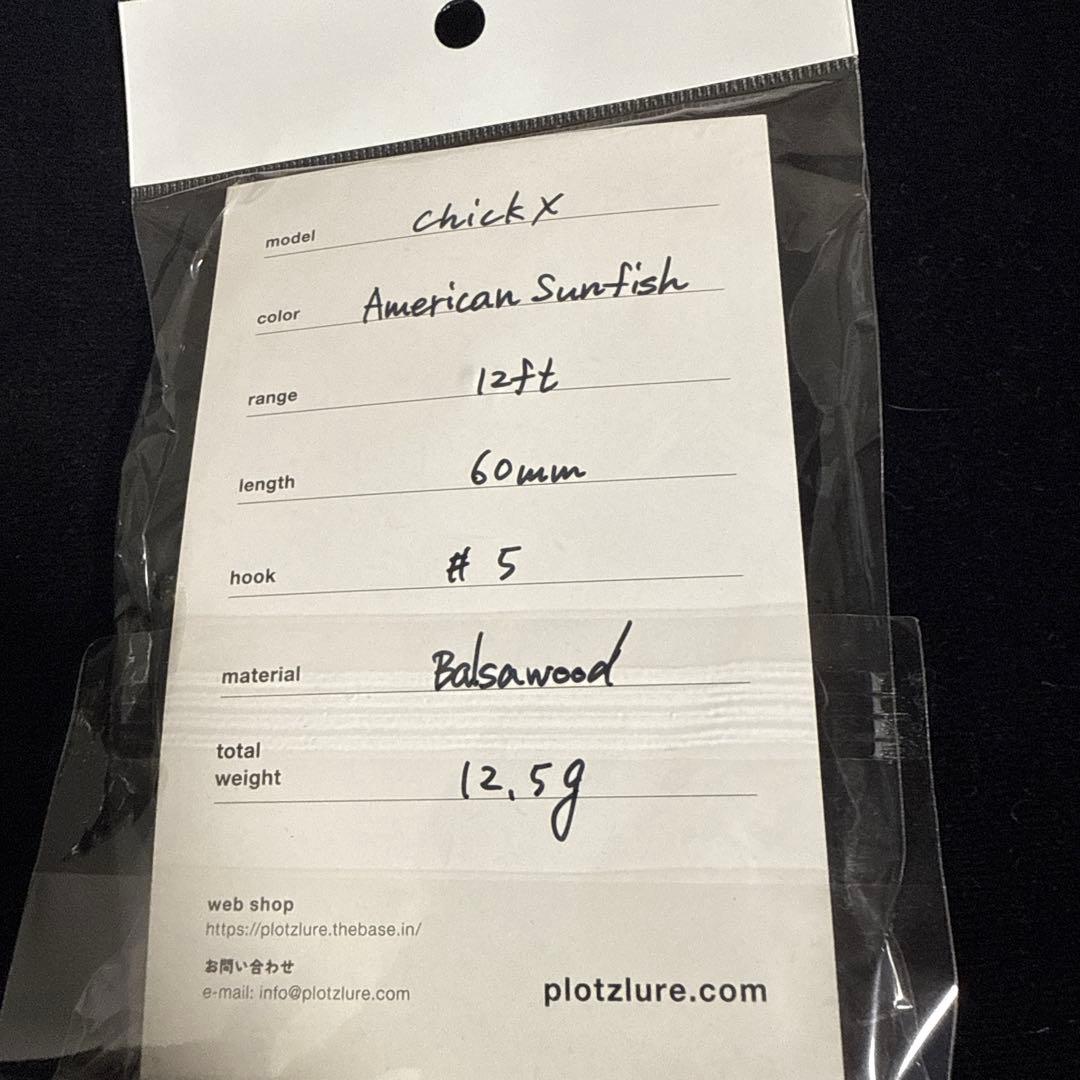 model Chick X
color American Sunfish
range 12ft
length 60mm
hook # 5
material Balsawood
total
weight 12.5g
web shop
https://plotzlure.thebase.in/
お問い合わせ
e-mail: info@plotzlure.com
plotzlure.com